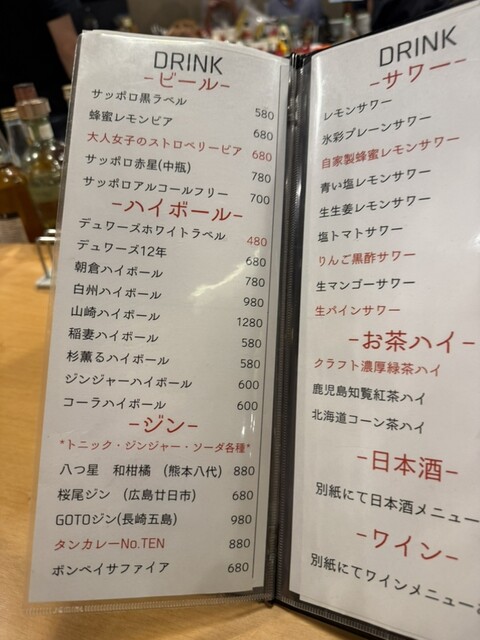 DRINK
-ビール-
サッポロ黒ラベル 580
蜂蜜レモンビア 680
大人女子のストロベリービア 680
サッポロ赤星(中瓶) 780
サッポロアルコールフリー 700
-ハイボール-
デュワーズホワイトラベル 480
デュワーズ12年 680
朝倉ハイボール 780
白州ハイボール 980
山崎ハイボール 1280
稲妻ハイボール 580
杉薫るハイボール 580
ジンジャーハイボール 600
コーラハイボール 600
-ジン-
*トニック・ジンジャー・ソーダ各種*
八つ星 和柑橘 (熊本八代) 880
桜尾ジン (広島廿日市) 680
GOTOジン(長崎五島) 980
タンカレーNo.TEN 880
ボンベイサファイア 680
DRINK
-サワー-
レモンサワー
氷彩プレーンサワー
自家製蜂蜜レモンサワー
青い塩レモンサワー
生生姜レモンサワー
塩トマトサワー
りんご黒酢サワー
生マンゴーサワー
生パインサワー
-お茶ハイ-
クラフト濃厚緑茶ハイ
鹿児島知覧紅茶ハイ
北海道コーン茶ハイ
-日本酒-
別紙にて日本酒メニュー
-ワイン-
別紙にてワインメニュー